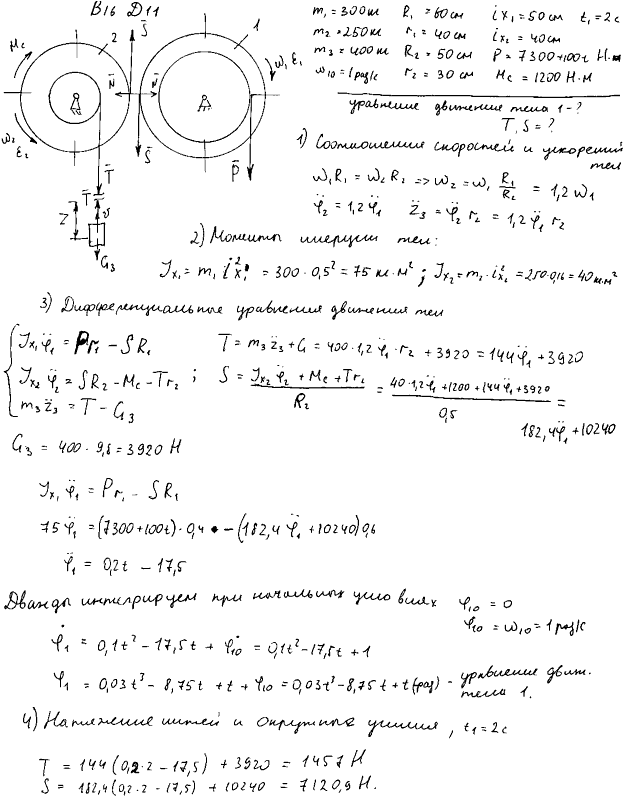 В16 D11
m₁ = 300 кг R₁ = 60 см i x₁ = 50 см t₁ = 2 с
m₂ = 250 кг r₁ = 40 см i x₂ = 40 см
m₃ = 400 кг R₂ = 50 см P = 7300+100t Н·м
ω₁₀ = 1 рад/с r₂ = 30 см Mc = 1200 Н·м
уравнение движение тела 1 - ?
T, S = ?
Mc 2 S̄ 1 ω₁ ε₁
N̄ N̄
ω₂ ε₂ T̄ S̄ P̄
T̄
Z v̄
G₃
1) Соотношение скоростей и ускорений
тел
ω₁R₁ = ω₂R₂ => ω₂ = ω₁ R₁/R₂ = 1,2 ω₁
φ̈₂ = 1,2 φ̈₁ z̈₃ = φ̈₂ r₂ = 1,2 φ̈₁ r₂
2) Моменты инерции тел:
Jx₁ = m₁ i²x₁ = 300 · 0,5² = 75 кг·м² ; Jx₂ = m₂ · i²x₂ = 250·0,16 = 40 кг·м²
3) Дифференциальные уравнения движения тел
Jx₁ φ̈₁ = Pr₁ - SR₁ T = m₃ z̈₃ + G = 400·1,2 φ̈₁ · r₂ + 3920 = 144 φ̈₁ + 3920
Jx₂ φ̈₂ = SR₂ - Mc - Tr₂ ; S = (Jx₂ φ̈₂ + Mc + Tr₂)/R₂ = (40·1,2φ̈₁ + 1200 + 144φ̈₁ + 3920)/0,5 =
m₃ z̈₃ = T - G₃
182,4φ̈₁ + 10240
G₃ = 400 · 9,8 = 3920 Н
Jx₁ φ̈₁ = Pr₁ - SR₁
75 φ̈₁ = (7300+100t)·0,4 - (182,4 φ̈₁ + 10240)0,6
φ̈₁ = 0,2t - 17,5
Дважды интегрируем при начальных условиях φ₁₀ = 0
φ̇₁₀ = ω₁₀ = 1 рад/с
φ̇₁ = 0,1t² - 17,5t + φ̇₁₀ = 0,1t² - 17,5t + 1
φ₁ = 0,03t³ - 8,75t + t + φ₁₀ = 0,03t³ - 8,75t + t (рад) - уравнение движ.
тела 1.
4) Натяжение нитей и окружные усилия, t₁ = 2 с
T = 144 (0,2·2 - 17,5) + 3920 = 1457 Н
S = 182,4(0,2·2 - 17,5) + 10240 = 7120,9 Н.